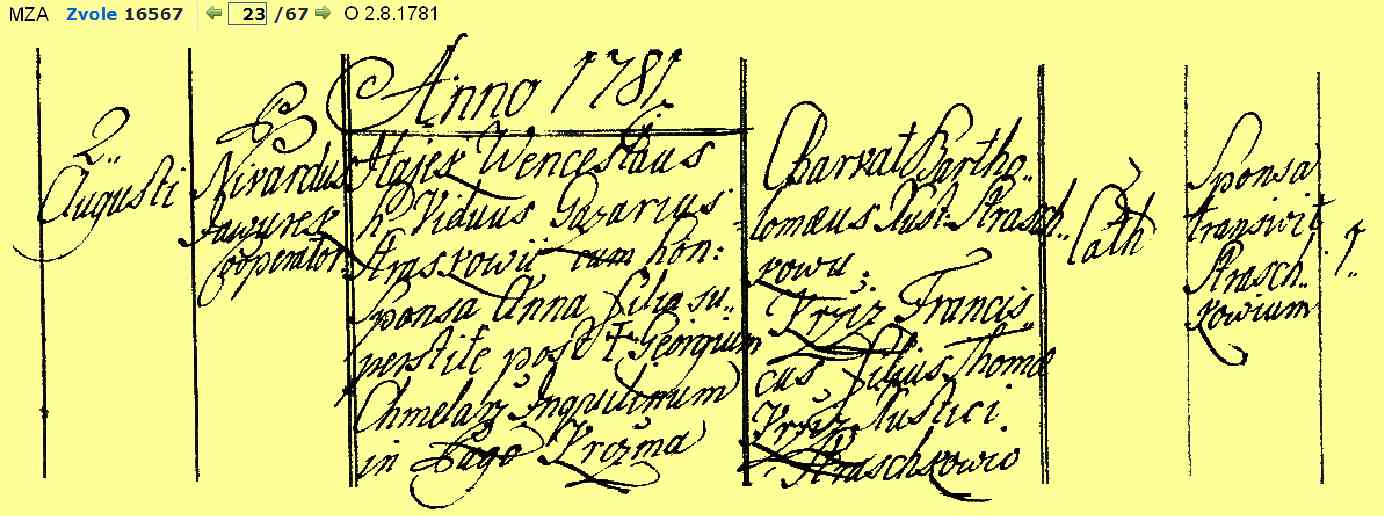 MZA Zvole 16567 23 /67 O 2.8.1781
Anno 1781
2..
Augusti
P
Nivardus
Jawurek
Cooperator
Hajek Wenceslaus
h. Viduus Gazarius
Straskowii cum hon:
Sponsa Anna filia su..
perstite post † Georgium
Chmelarz Inquilinum
in Pago Krczma
Charvat Bartho..
lomæus Rust. Strasch..
kowii.
Krziz Francis
cus filius Thomæ
Krziz Rustici
Straschkowio
Cath
Sponsa
transivit
Strasch..
kowium